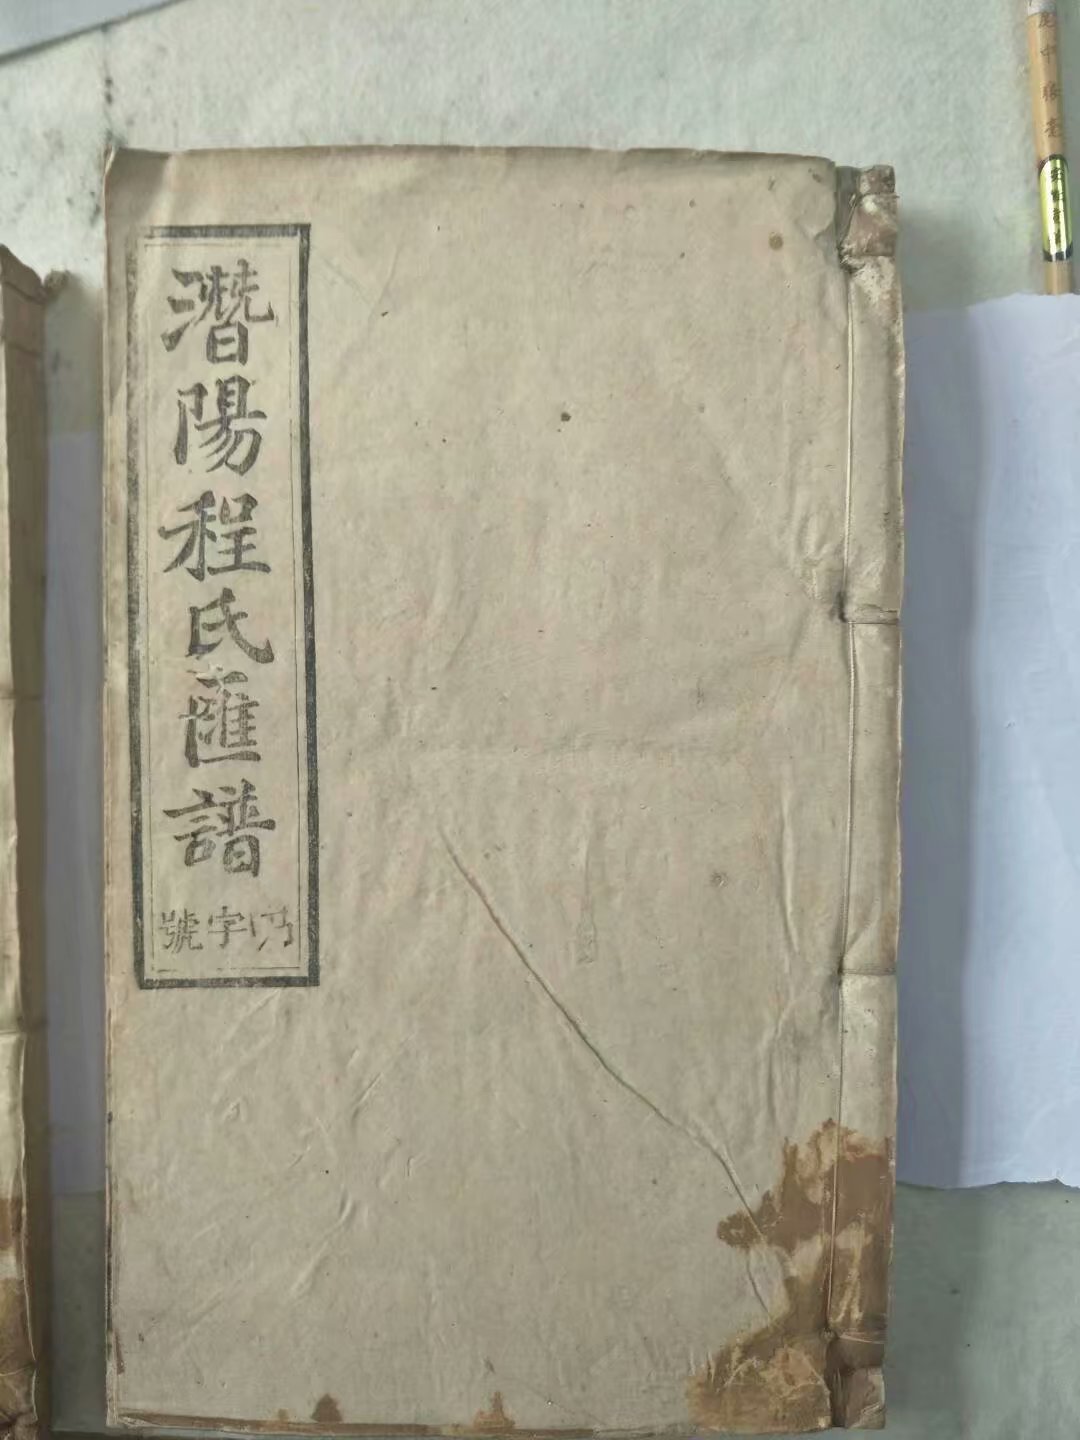 潛陽程氏匯譜
字號